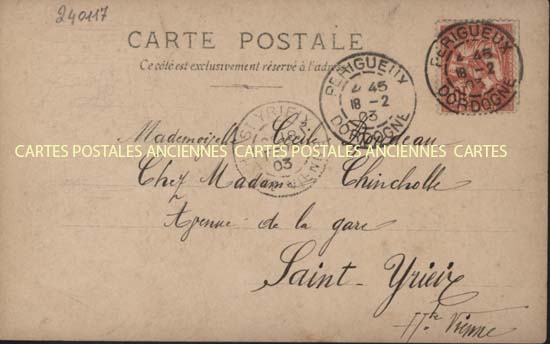 240117
CARTE POSTALE
Ce côté est exclusivement réservé à l'adresse
PERIGUEUX
4 45
18 - 2
03
DORDOGNE
PERIGUEUX
45
18 - 2
DORDOGNE
ST YRIEIX
03
VIENNE
Mademoiselle Cécile
CARTES POSTALES ANCIENNES CARTES POSTALES ANCIENNES CARTES
Chez Madame Chincholle
Avenue de la gare
Saint-Yrieix
Hte Vienne